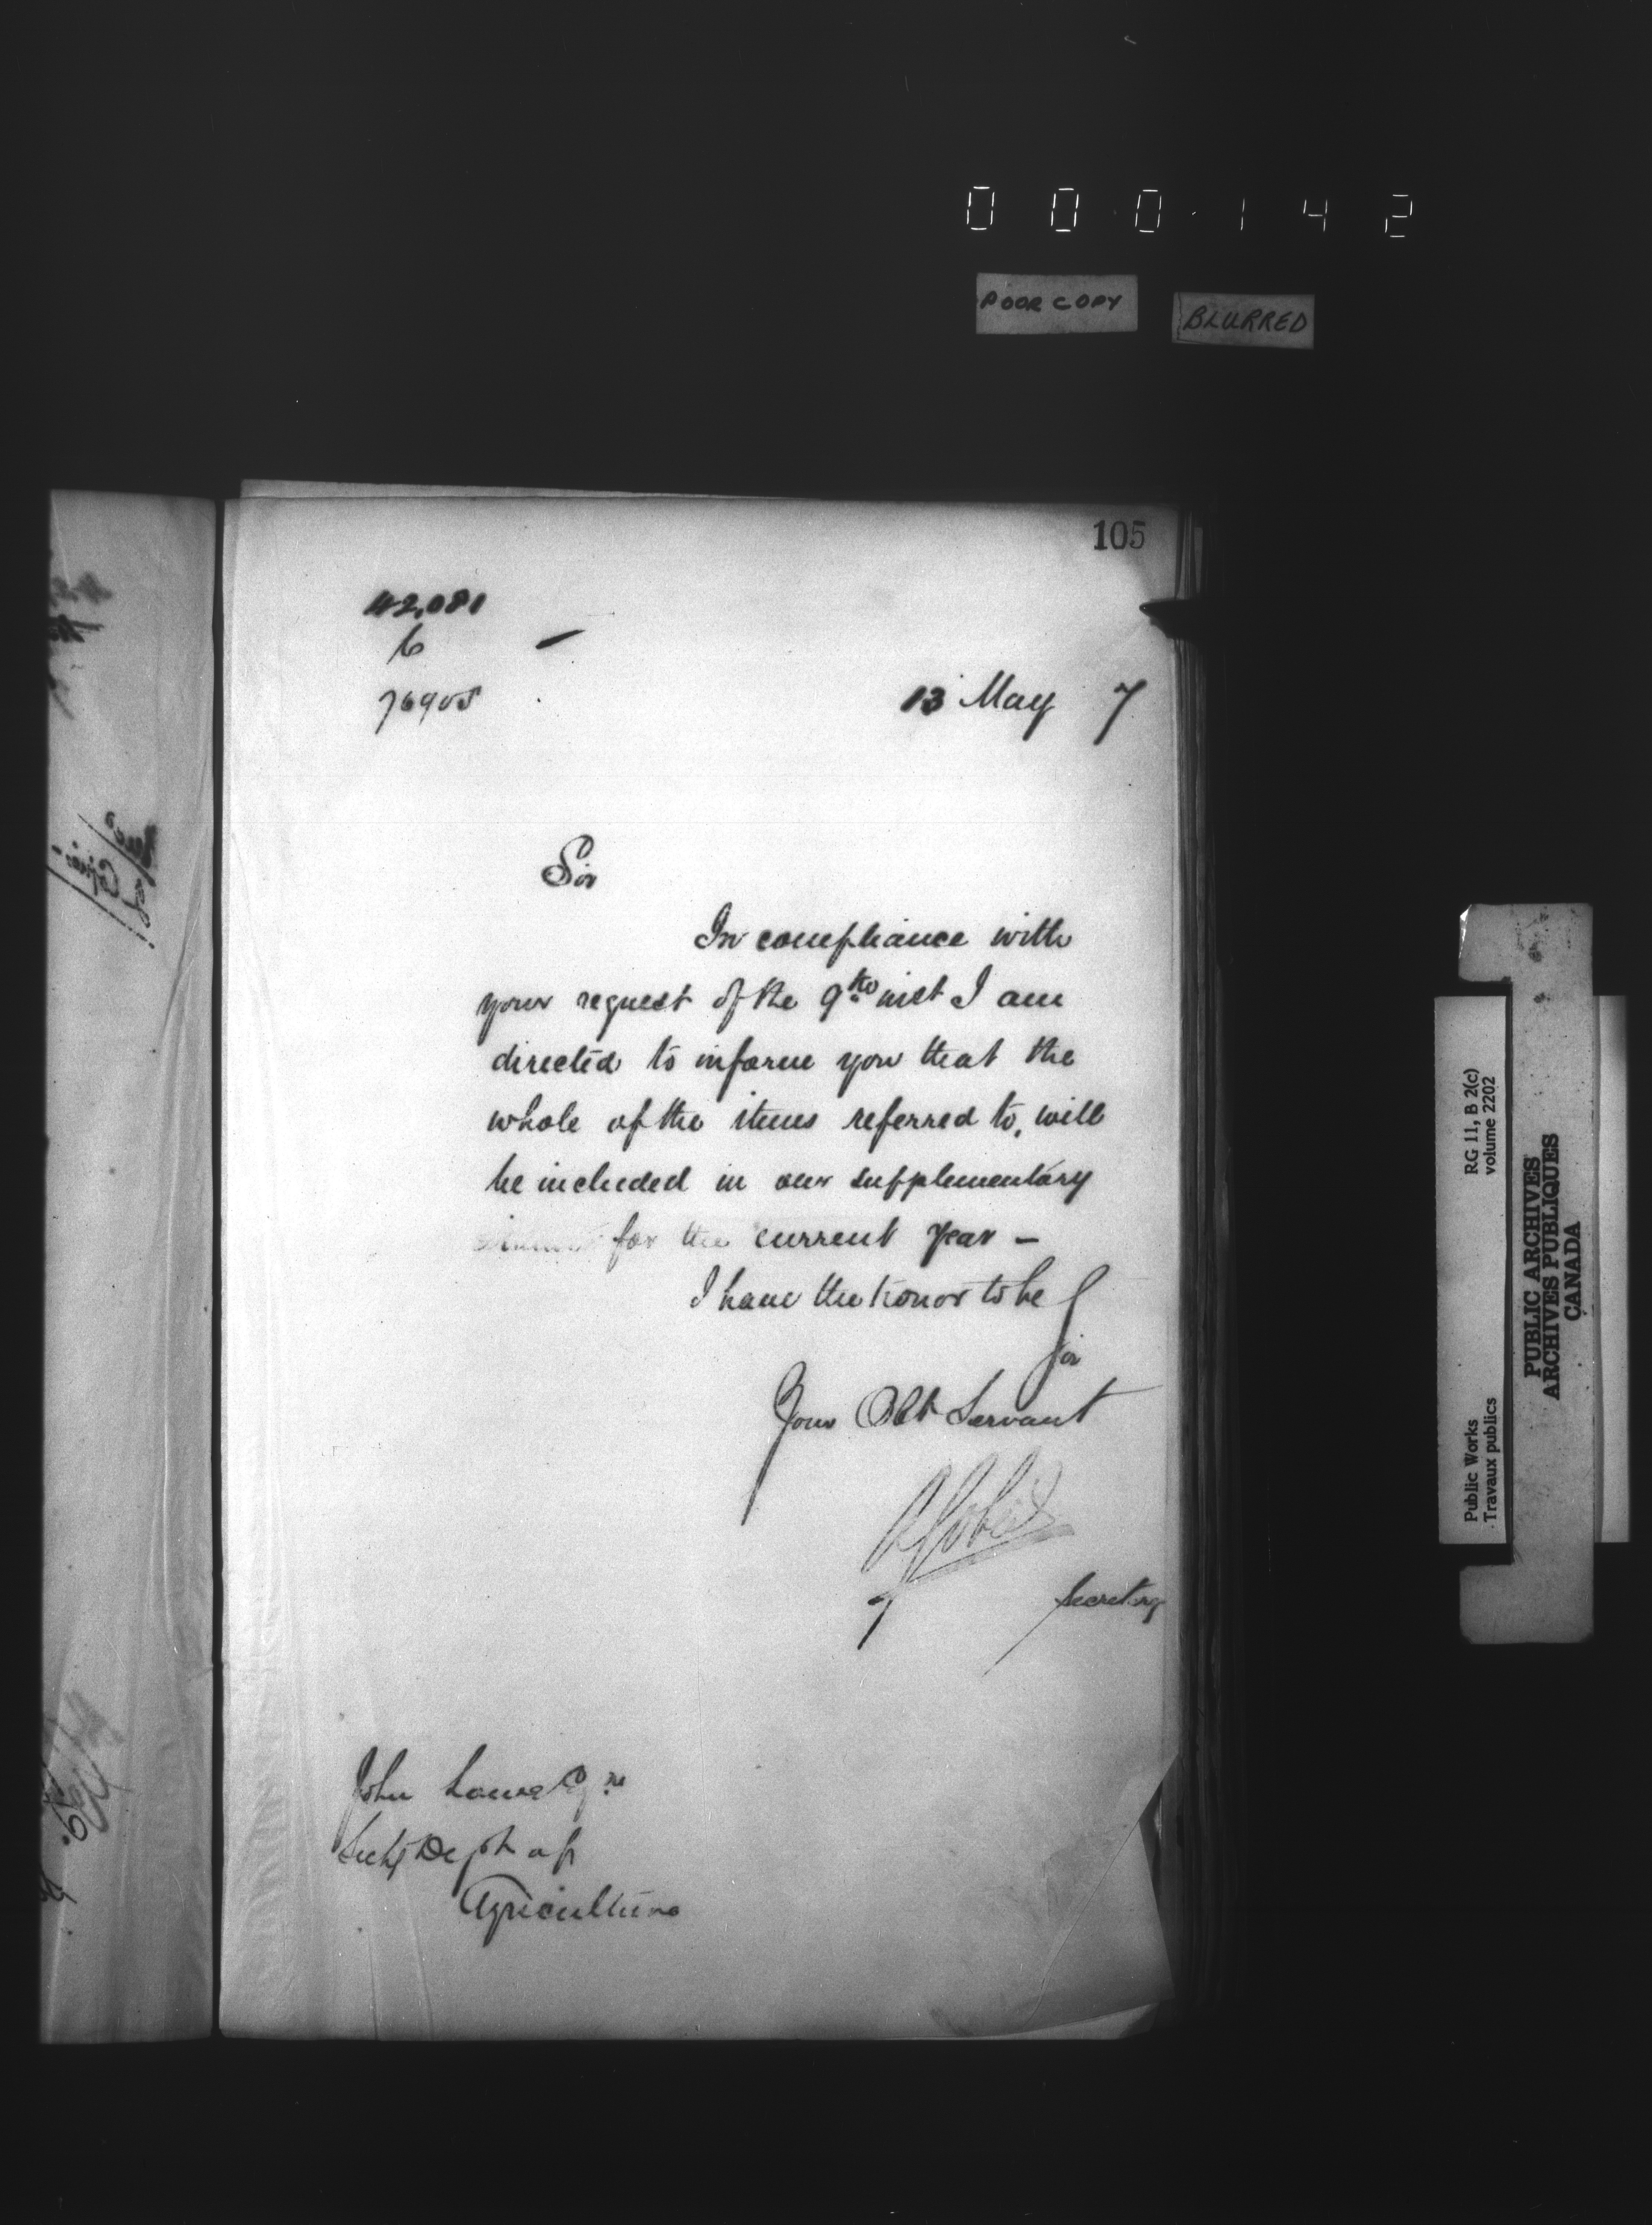 000142
POOR COPY
BLURRED
105
42,081
6
76905
13 May 7
Sir
In compliance with
your request of the 9th inst I am
directed to inform you that the
whole of the items referred to, will
be included in our supplementary
for the current year —
I have the honor to be
Sir
Your Obt Servant
Secretary
John Lowe Esqre
Secty Dept of
Agriculture
RG 11, B 2(c)
volume 2202
Public Works
Travaux publics
PUBLIC ARCHIVES
ARCHIVES PUBLIQUES
CANADA